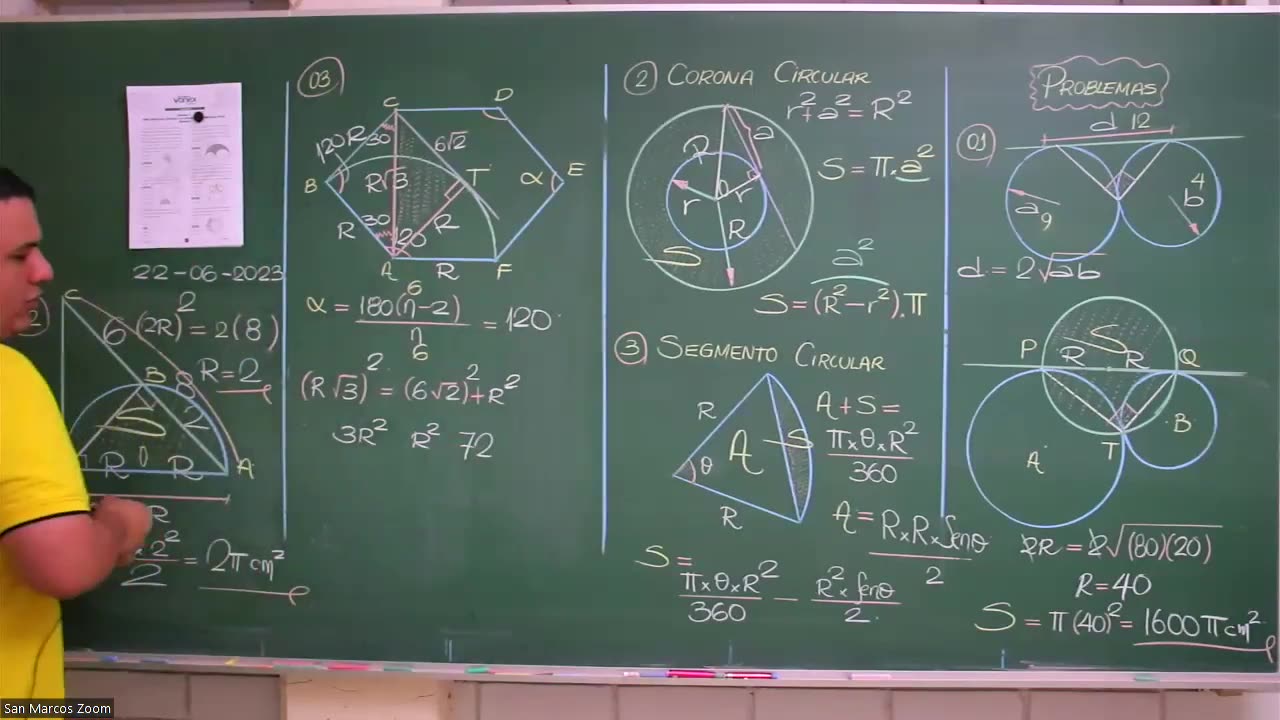 Vonex
22-06-2023
2)
C
6 (2R)² = 2(8)
R = 2
B
8
S
2
R
R
A
R
2²
2
= 2π cm²
03
C
D
120
R
30
6√2
B
R√3
T
α
E
R
30
R
A
R
F
α = 180(n-2) = 120
n
6
6
(R√3)² = (6√2)² + R²
3R² R² 72
2 CORONA CIRCULAR
r² + a² = R²
R
a
S = π.a²
r
r
R
S
a²
S = (R² - r²).π
3 SEGMENTO CIRCULAR
R
θ
A
S
R
A + S =
π×θ×R²
360
A = R×R×Senθ
2
S =
π×θ×R²
360
-
R²×Senθ
2
PROBLEMAS
01
d 12
a 9
b 4
d = 2√ab
P
S
R
R
Q
A
T
B
2R = 2√(80)(20)
R = 40
S = π(40)² = 1600π cm²
San Marcos Zoom